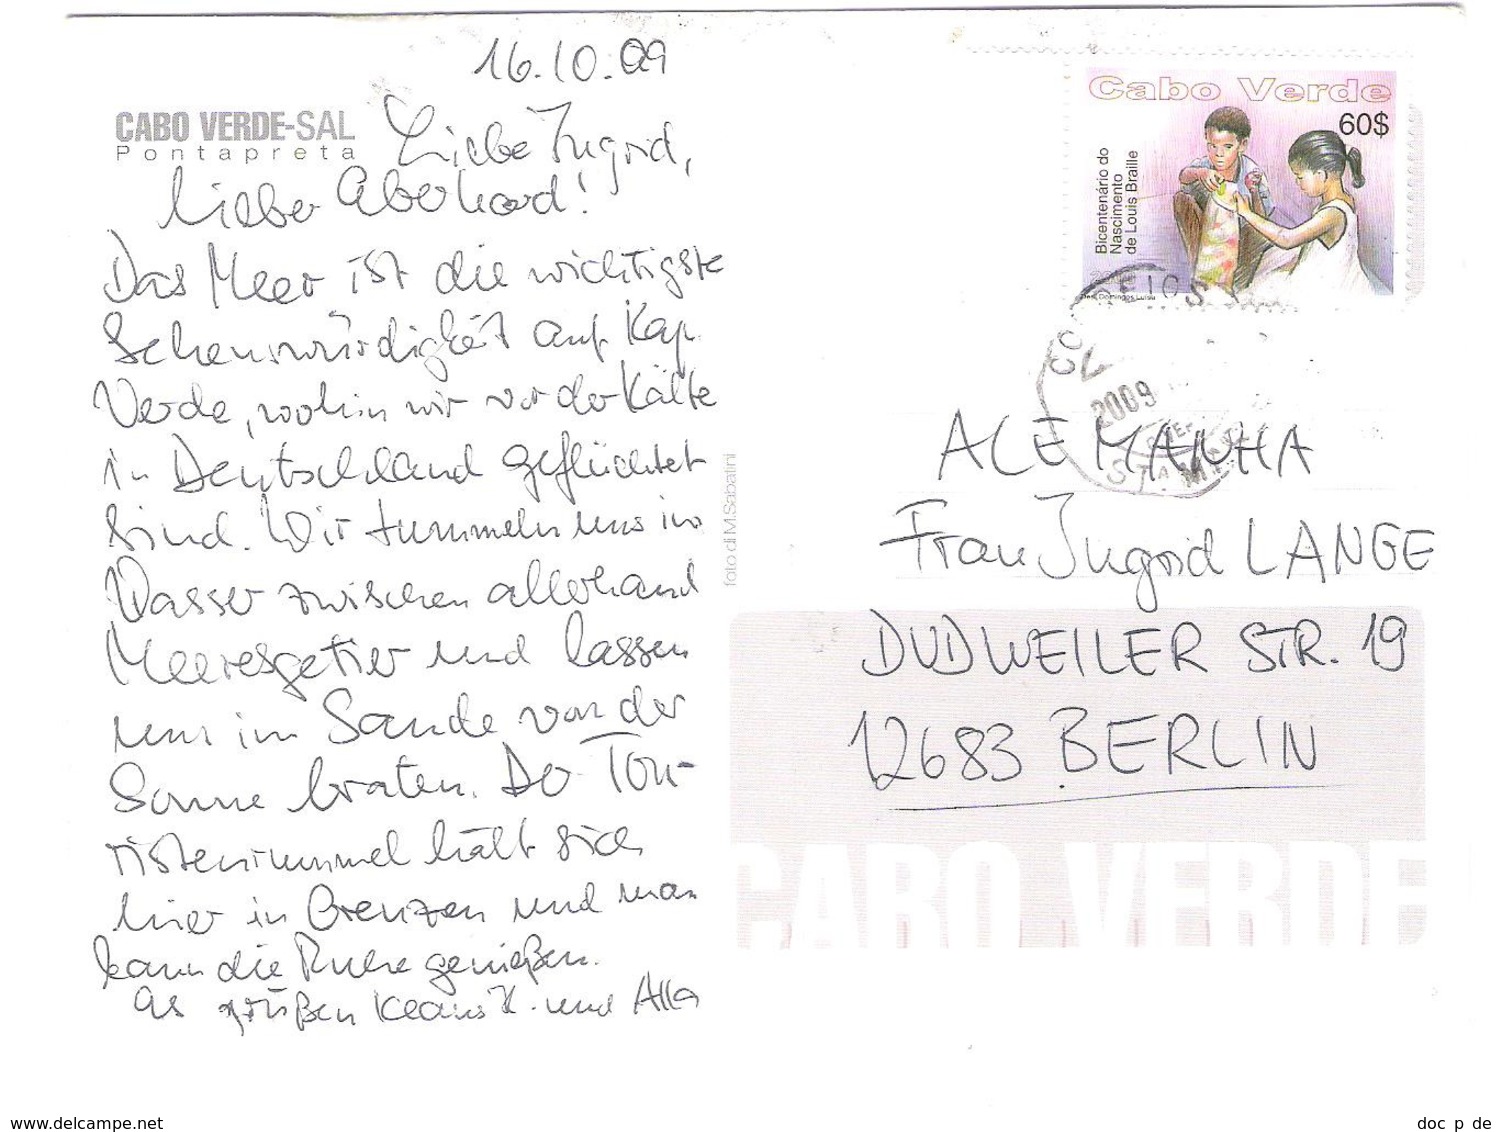 16.10.09
CABO VERDE-SAL
Pontapreta
Liebe Ingrid,
lieber Eberhard!
Das Meer ist die wichtigste
Sehenswürdigkeit auf Kap
Verde, wohin wir vor der Kälte
in Deutschland geflüchtet
sind. Wir tummeln uns im
Wasser zwischen allerhand
Meeresgetier und lassen
uns im Sande von der
Sonne braten. Der Tou-
ristenrummel hält sich
hier in Grenzen und man
kann die Ruhe genießen.
Es grüßen Klaus H. und Alla
foto di M.Sabatini
Cabo Verde
60$
Bicentenário do
Nascimento
de Louis Braille
Des. Domingos Luisa
CORREIOS
CV
2009
STA. M
ALEMANHA
Frau Ingrid LANGE
DUDWEILER STR. 19
12683 BERLIN
CABO VERDE
www.delcampe.net
doc_p_de